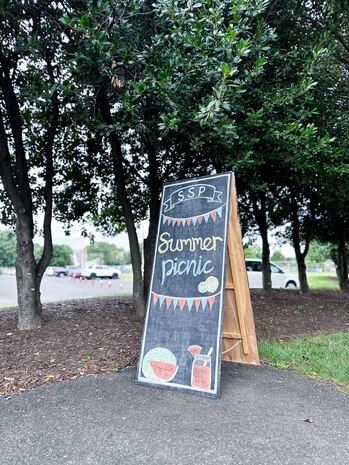 SSP
Summer
picnic